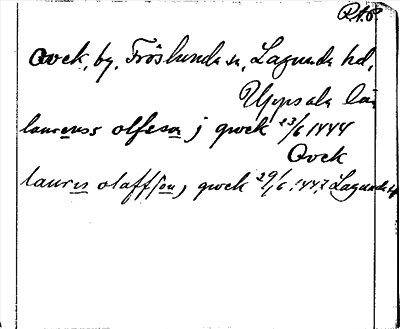 Qvek, by, Fröslunda sn, Lagunda hd,
Uppsala län
laurenss olfsson j qwek 23/6 1444
Qvek
lauris olaffson, qwek 29/6 1447, Lagunda